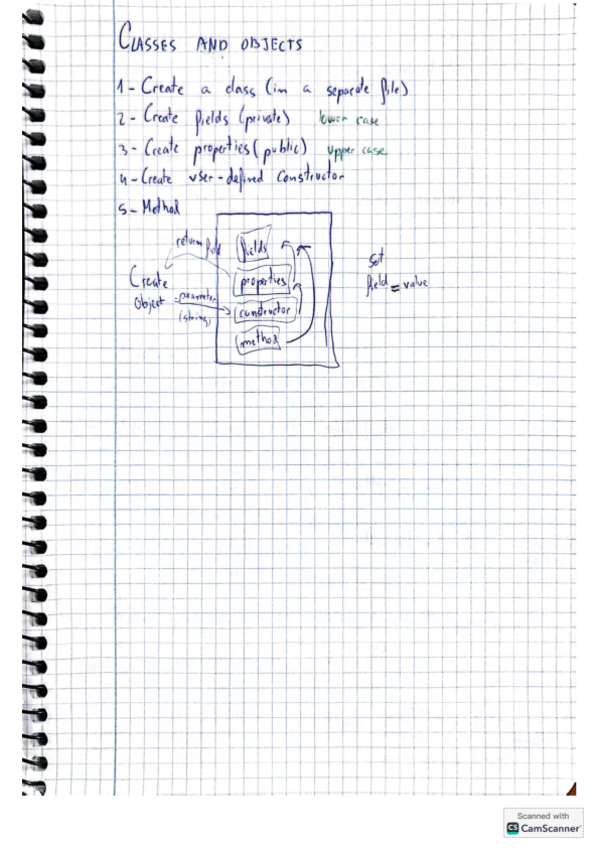 CLASSES AND OBJECTS
1- Create a class (in a separate file)
2- Create fields (private) lower case
3- Create properties (public) upper case
4- Create user-defined constructor
5- Method
return field
fields
properties
constructor
method
Create
Object
parameter
(string)
set
field = value
Scanned with
CS CamScanner